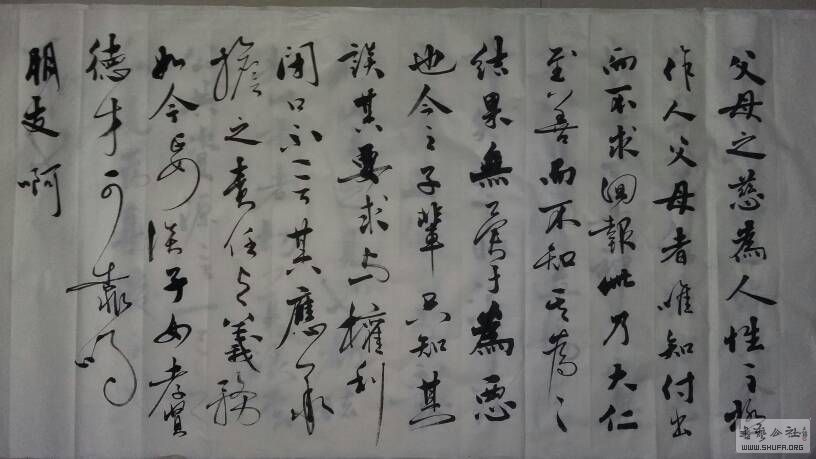 父母之慈為人性之極
作人父母者唯知付出
而不求回報此乃大仁
至善而不知其為之
结果無异于為惡
也今之子輩只知其
談其要求与權利
闭口不言其應承
擔之责任与義務
如今談子女孝賢
德才可靠嗎
朋友啊
书艺公社
WWW.SHUFA.ORG